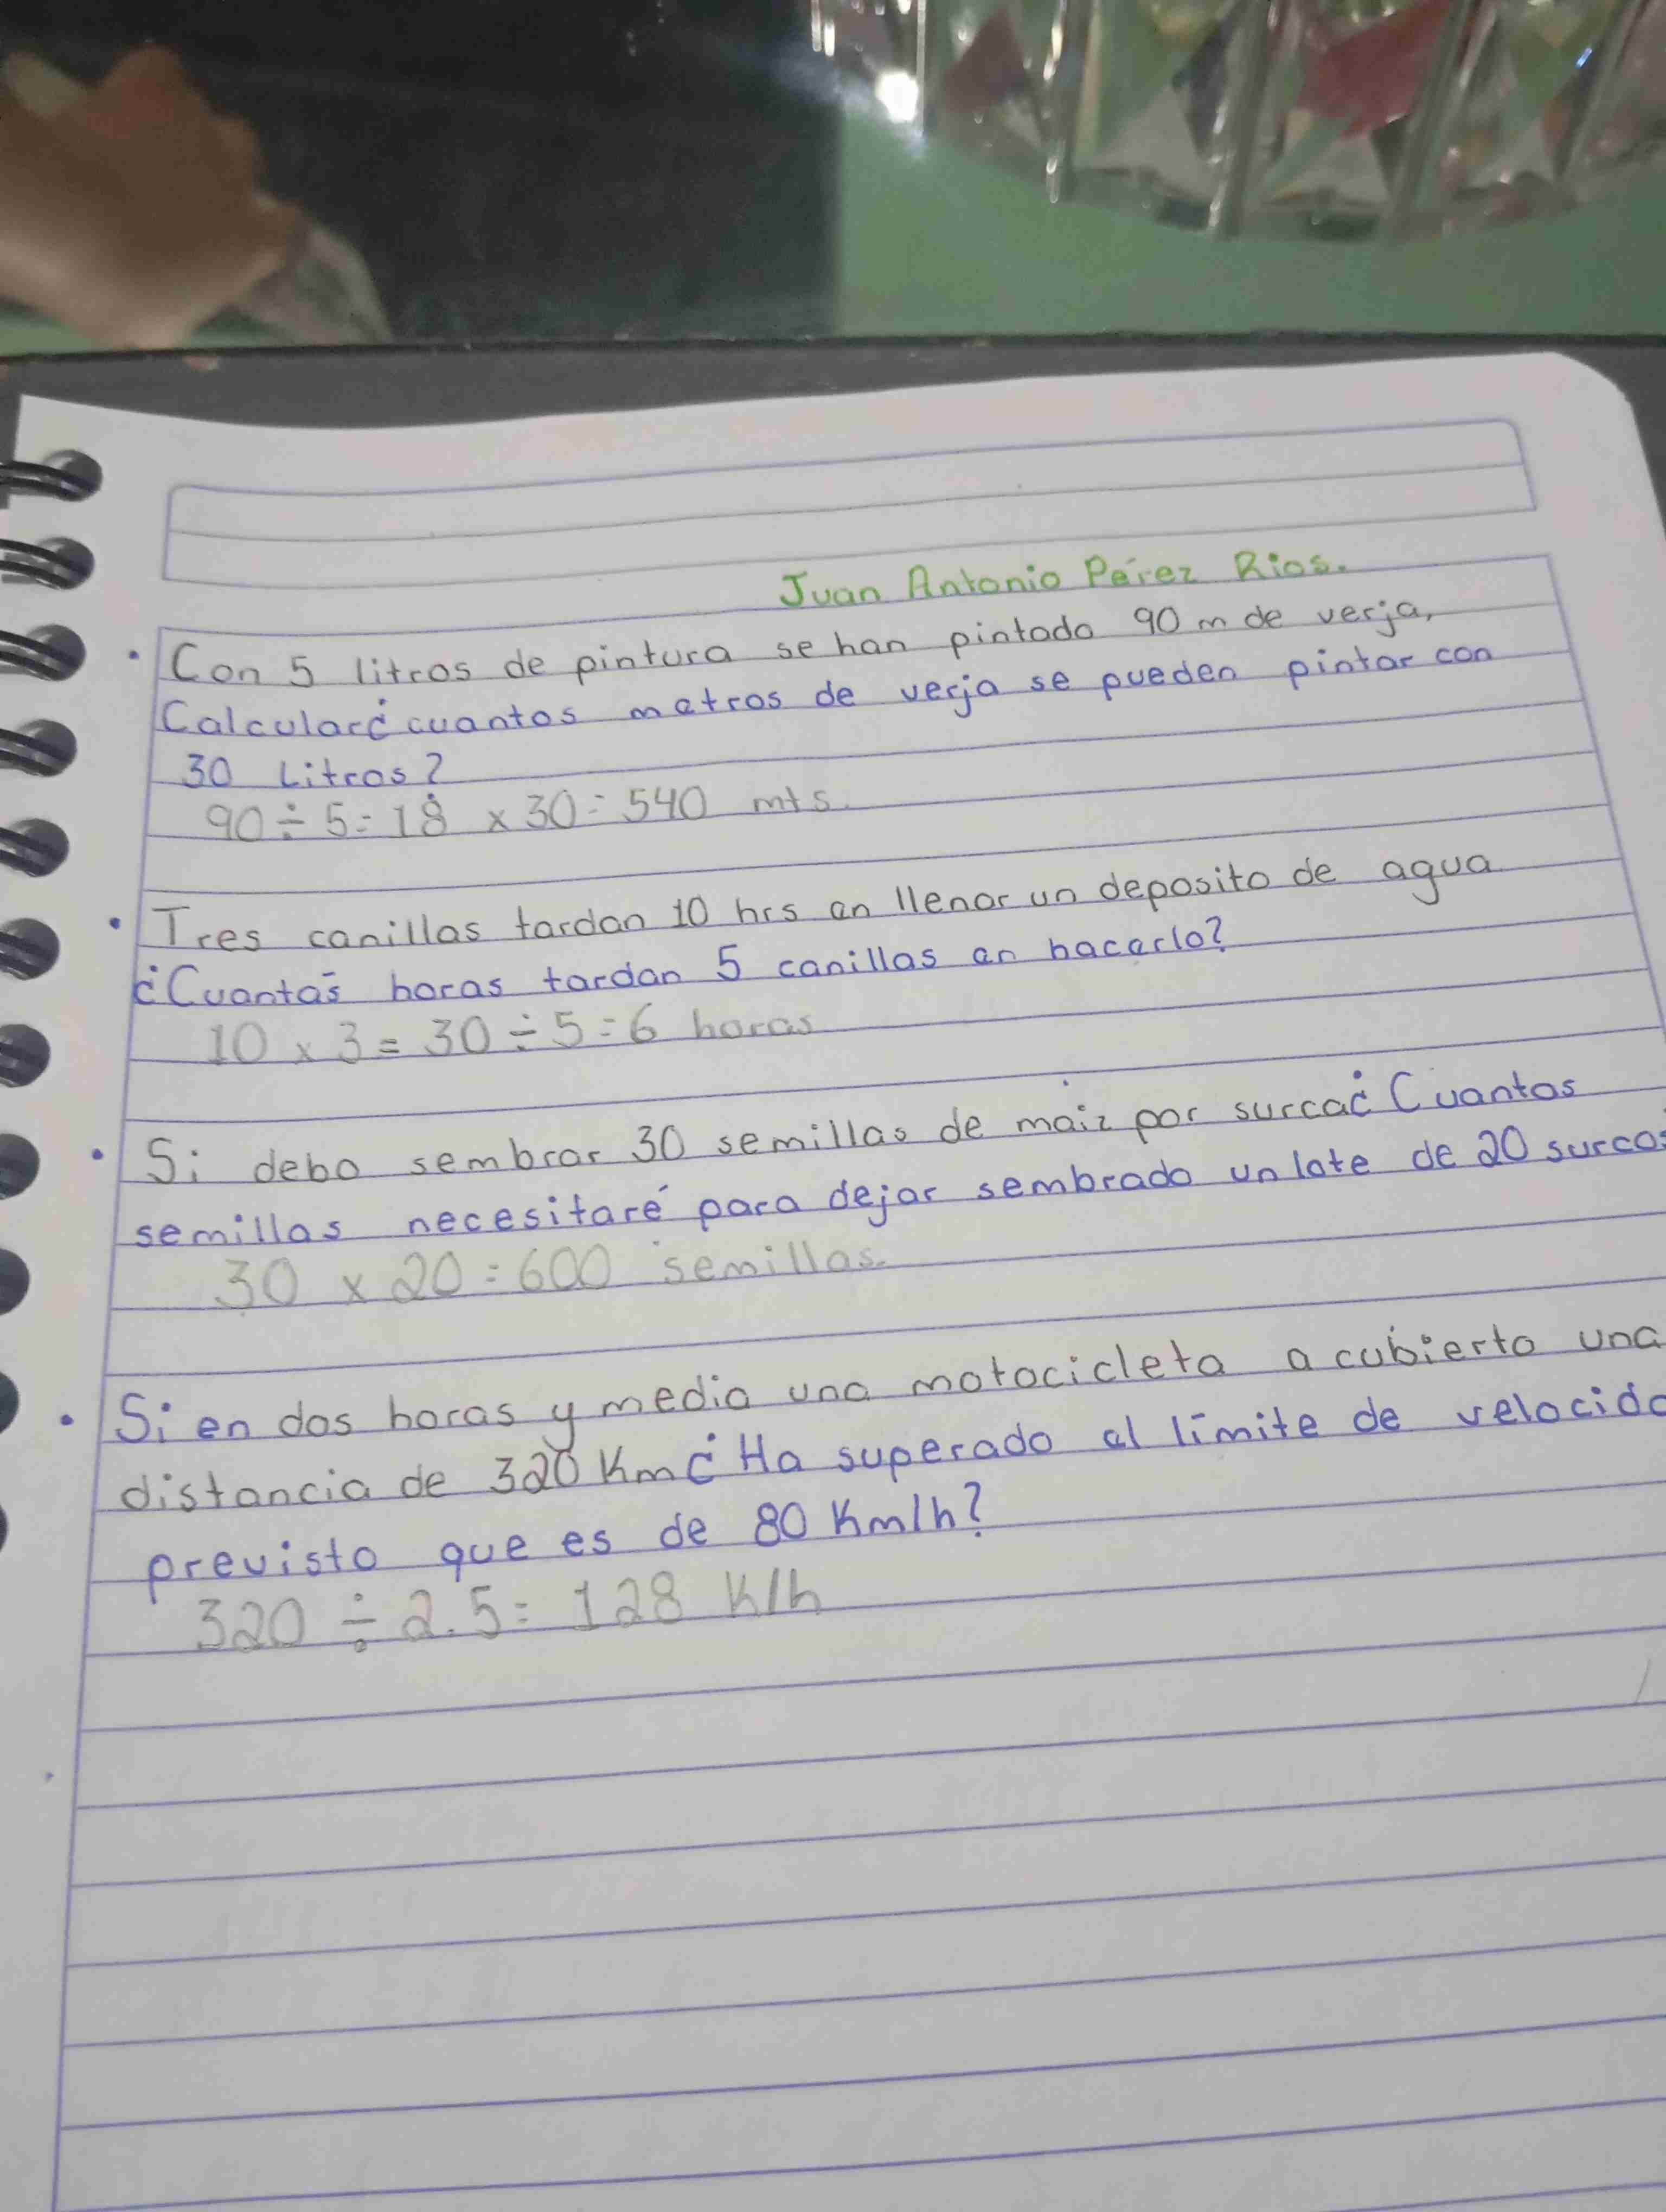 Juan Antonio Pérez Rios.
• Con 5 litros de pintura se han pintado 90 m de verja,
Calcular¿cuantos metros de verja se pueden pintar con
30 Litros?
90 ÷ 5 = 18 x 30 = 540 mts.
• Tres canillas tardan 10 hrs en llenar un deposito de agua
¿Cuantas horas tardan 5 canillas en hacerlo?
10 x 3 = 30 ÷ 5 = 6 horas
• Si debo sembrar 30 semillas de maiz por surca¿Cuantos
semillas necesitaré para dejar sembrado un lote de 20 surcos
30 x 20 = 600 semillas.
• Si en dos horas y media una motocicleta a cubierto una
distancia de 320 Km¿Ha superado el límite de velocida
previsto que es de 80 Km/h?
320 ÷ 2.5 = 128 K/h